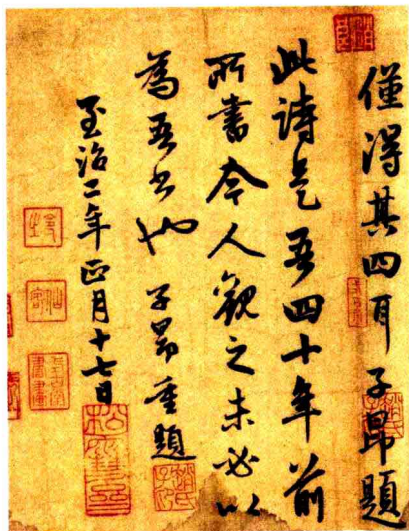 僅得其四耳子昂題
此詩是吾四十年前
所書今人觀之未必以
為吾書也子昂重題
至治二年正月十七日
松雪齋
趙氏子昂